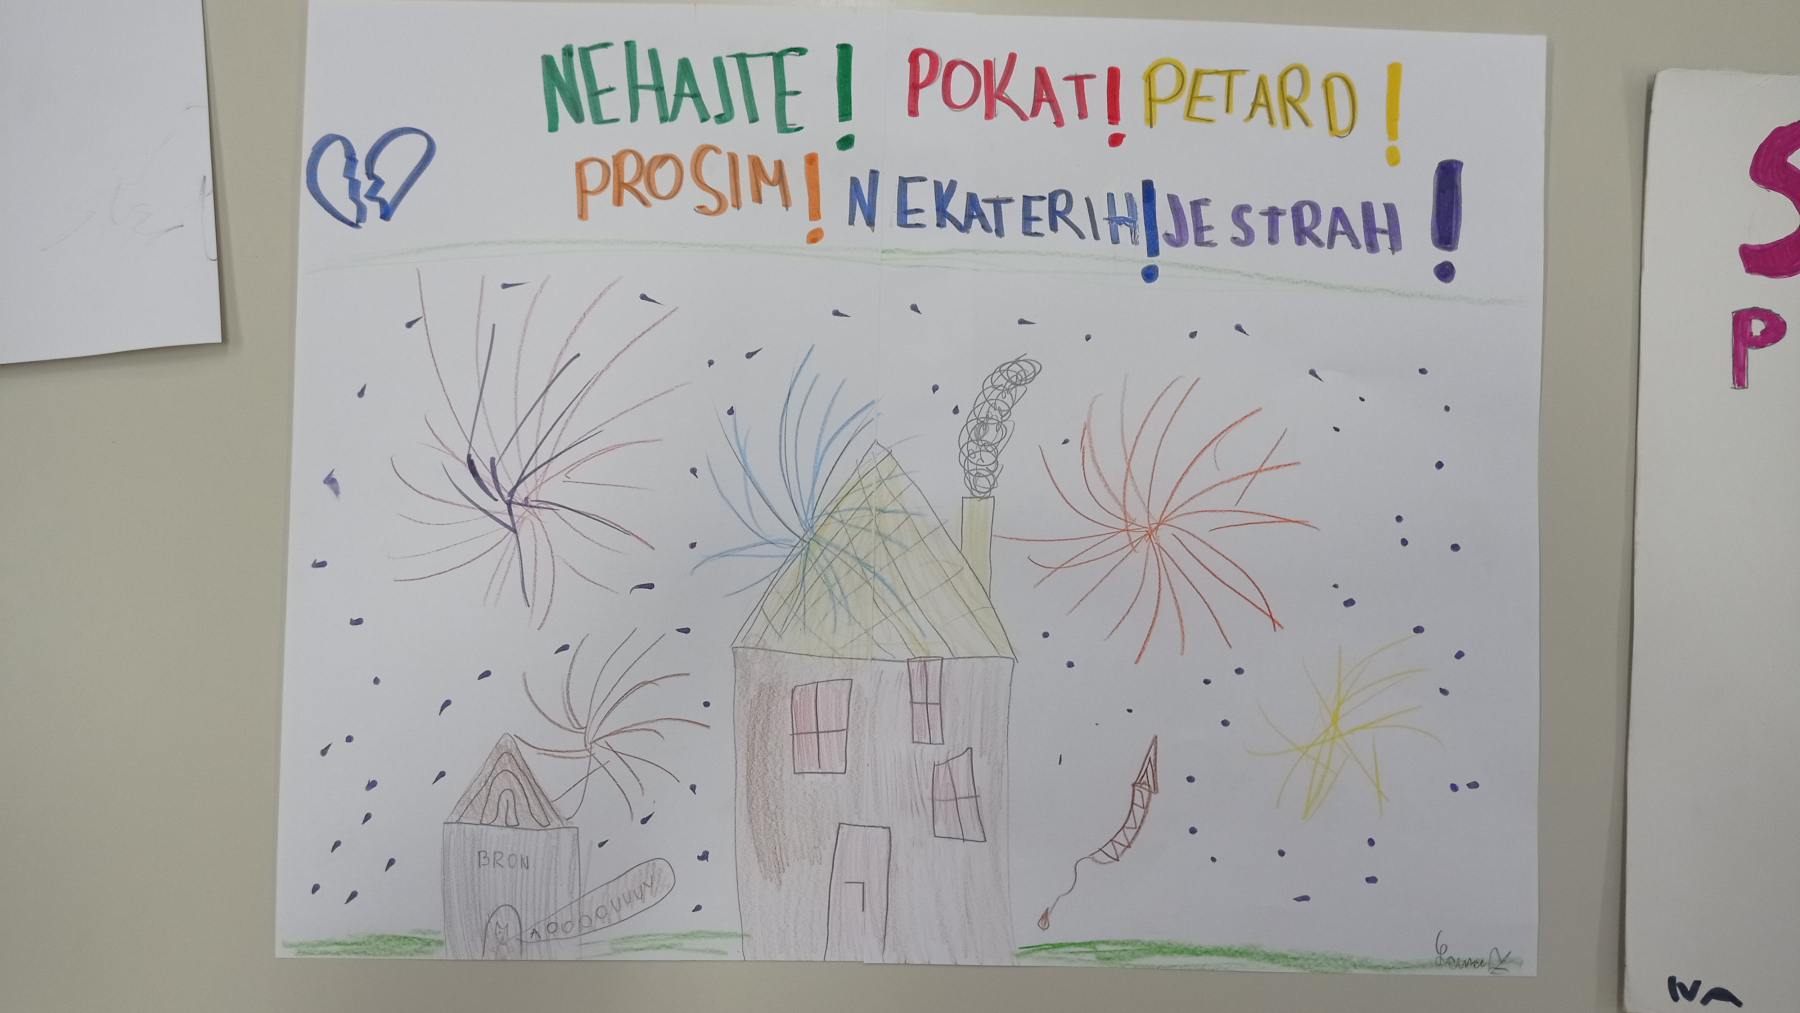 NEHAJTE! POKAT! PETARD!
PROSIM! NEKATERIH! JE STRAH!
BRON
AOOOOUUUV
S
P
IVA